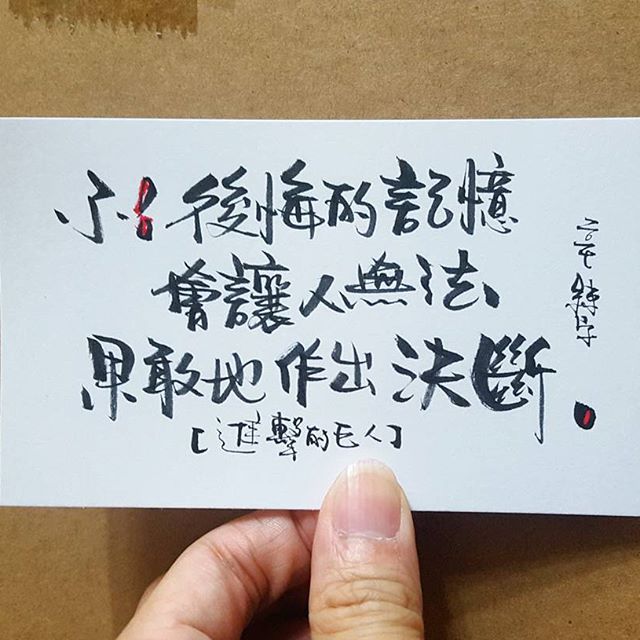 不後悔的記憶
會讓人無法
果敢地作出決斷
【進擊的巨人】